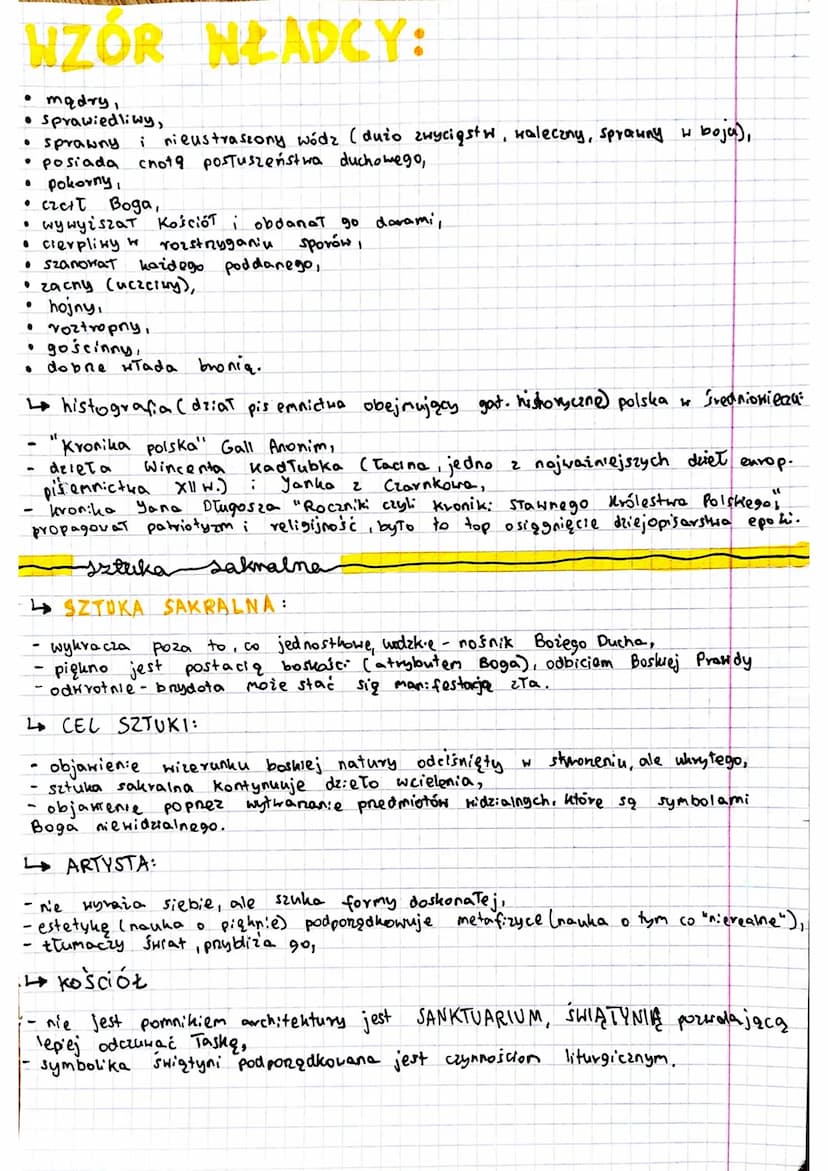 WZÓR WŁADCY:
• mądry,
• sprawiedliwy,
• sprawny i nieustraszony wódz (dużo zwycięstw, waleczny, sprawny w boju),
• posiada cnotę posłuszeństwa duchowego,
• pokorny,
• czcił Boga,
• wywyższał Kościół i obdarzał go darami,
• cierpliwy w rozstrzyganiu sporów,
• szanował każdego poddanego,
• zacny (uczciwy),
• hojny,
• roztropny,
• gościnny,
• dobrze włada bronią.
↳ histografia (dział piśemnictwa obejmujący gat. historyczne) polska w średniowieczu:
- "Kronika polska" Gall Anonim,
- dzieła Wincenta Kadłubka (łacina, jedno z najważniejszych dzieł europ.
piśemnictwa XII w.) i Janka z Czarnkowa,
- kronika Jana Długosza "Roczniki czyli kroniki sławnego Królestwa Polskiego",
propagował patriotyzm i religijność, było to top osiągnięcie dziejopisarstwa epoki.
sztuka sakralna
↳ SZTUKA SAKRALNA:
- wykracza poza to, co jednostkowe, ludzkie - nośnik Bożego Ducha,
- piękno jest postacią boskości (atrybutem Boga), odbiciem Boskiej Prawdy
- odwrotnie - brzydota może stać się manifestacją zła.
↳ CEL SZTUKI:
- objawienie wizerunku boskiej natury odciśnięty w stworzeniu, ale ukrytego,
- sztuka sakralna kontynuuje dzieło wcielenia,
- objawienie poprzez wytwarzanie przedmiotów widzialnych, które są symbolami
Boga niewidzialnego.
↳ ARTYSTA:
- nie wyraża siebie, ale szuka formy doskonałej,
- estetykę (nauka o pięknie) podporządkowuje metafizyce (nauka o tym co "nierealne"),
- tłumaczy świat, przybliża go,
↳ KOŚCIÓŁ
- nie jest pomnikiem architektury jest SANKTUARIUM, ŚWIĄTYNIĄ pozwalającą
lepiej odczuwać łaskę,
- symbolika świątyni podporządkowana jest czynnościom liturgicznym.